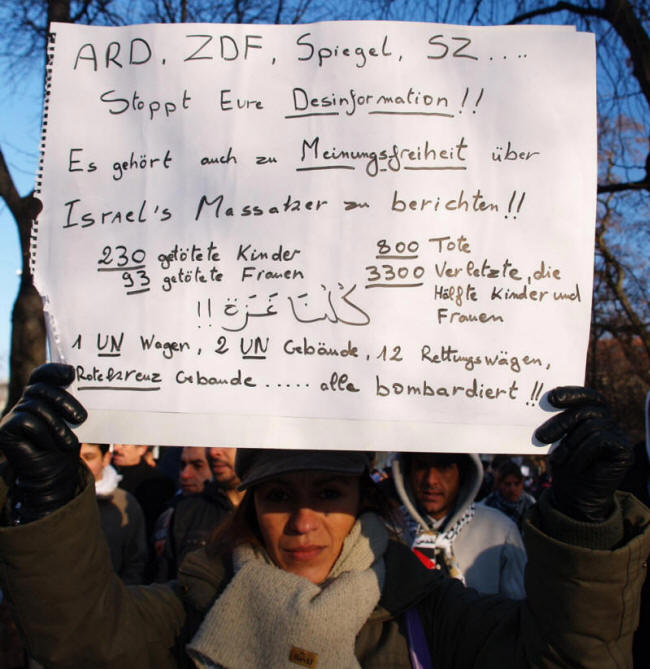 ARD, ZDF, Spiegel, SZ....
Stoppt Eure Desinformation!!
Es gehört auch zu Meinungsfreiheit über
ISRAEL's Massaker zu berichten!!
230 getötete Kinder
93 getötete Frauen
800 Tote
3300 Verletzte, die
Hälfte Kinder und
Frauen
كُلُّنَا غَزَة !!
1 UN Wagen, 2 UN Gebäude, 12 Rettungswägen,
Rotekreuz Gebäude ..... alle bombardiert!!